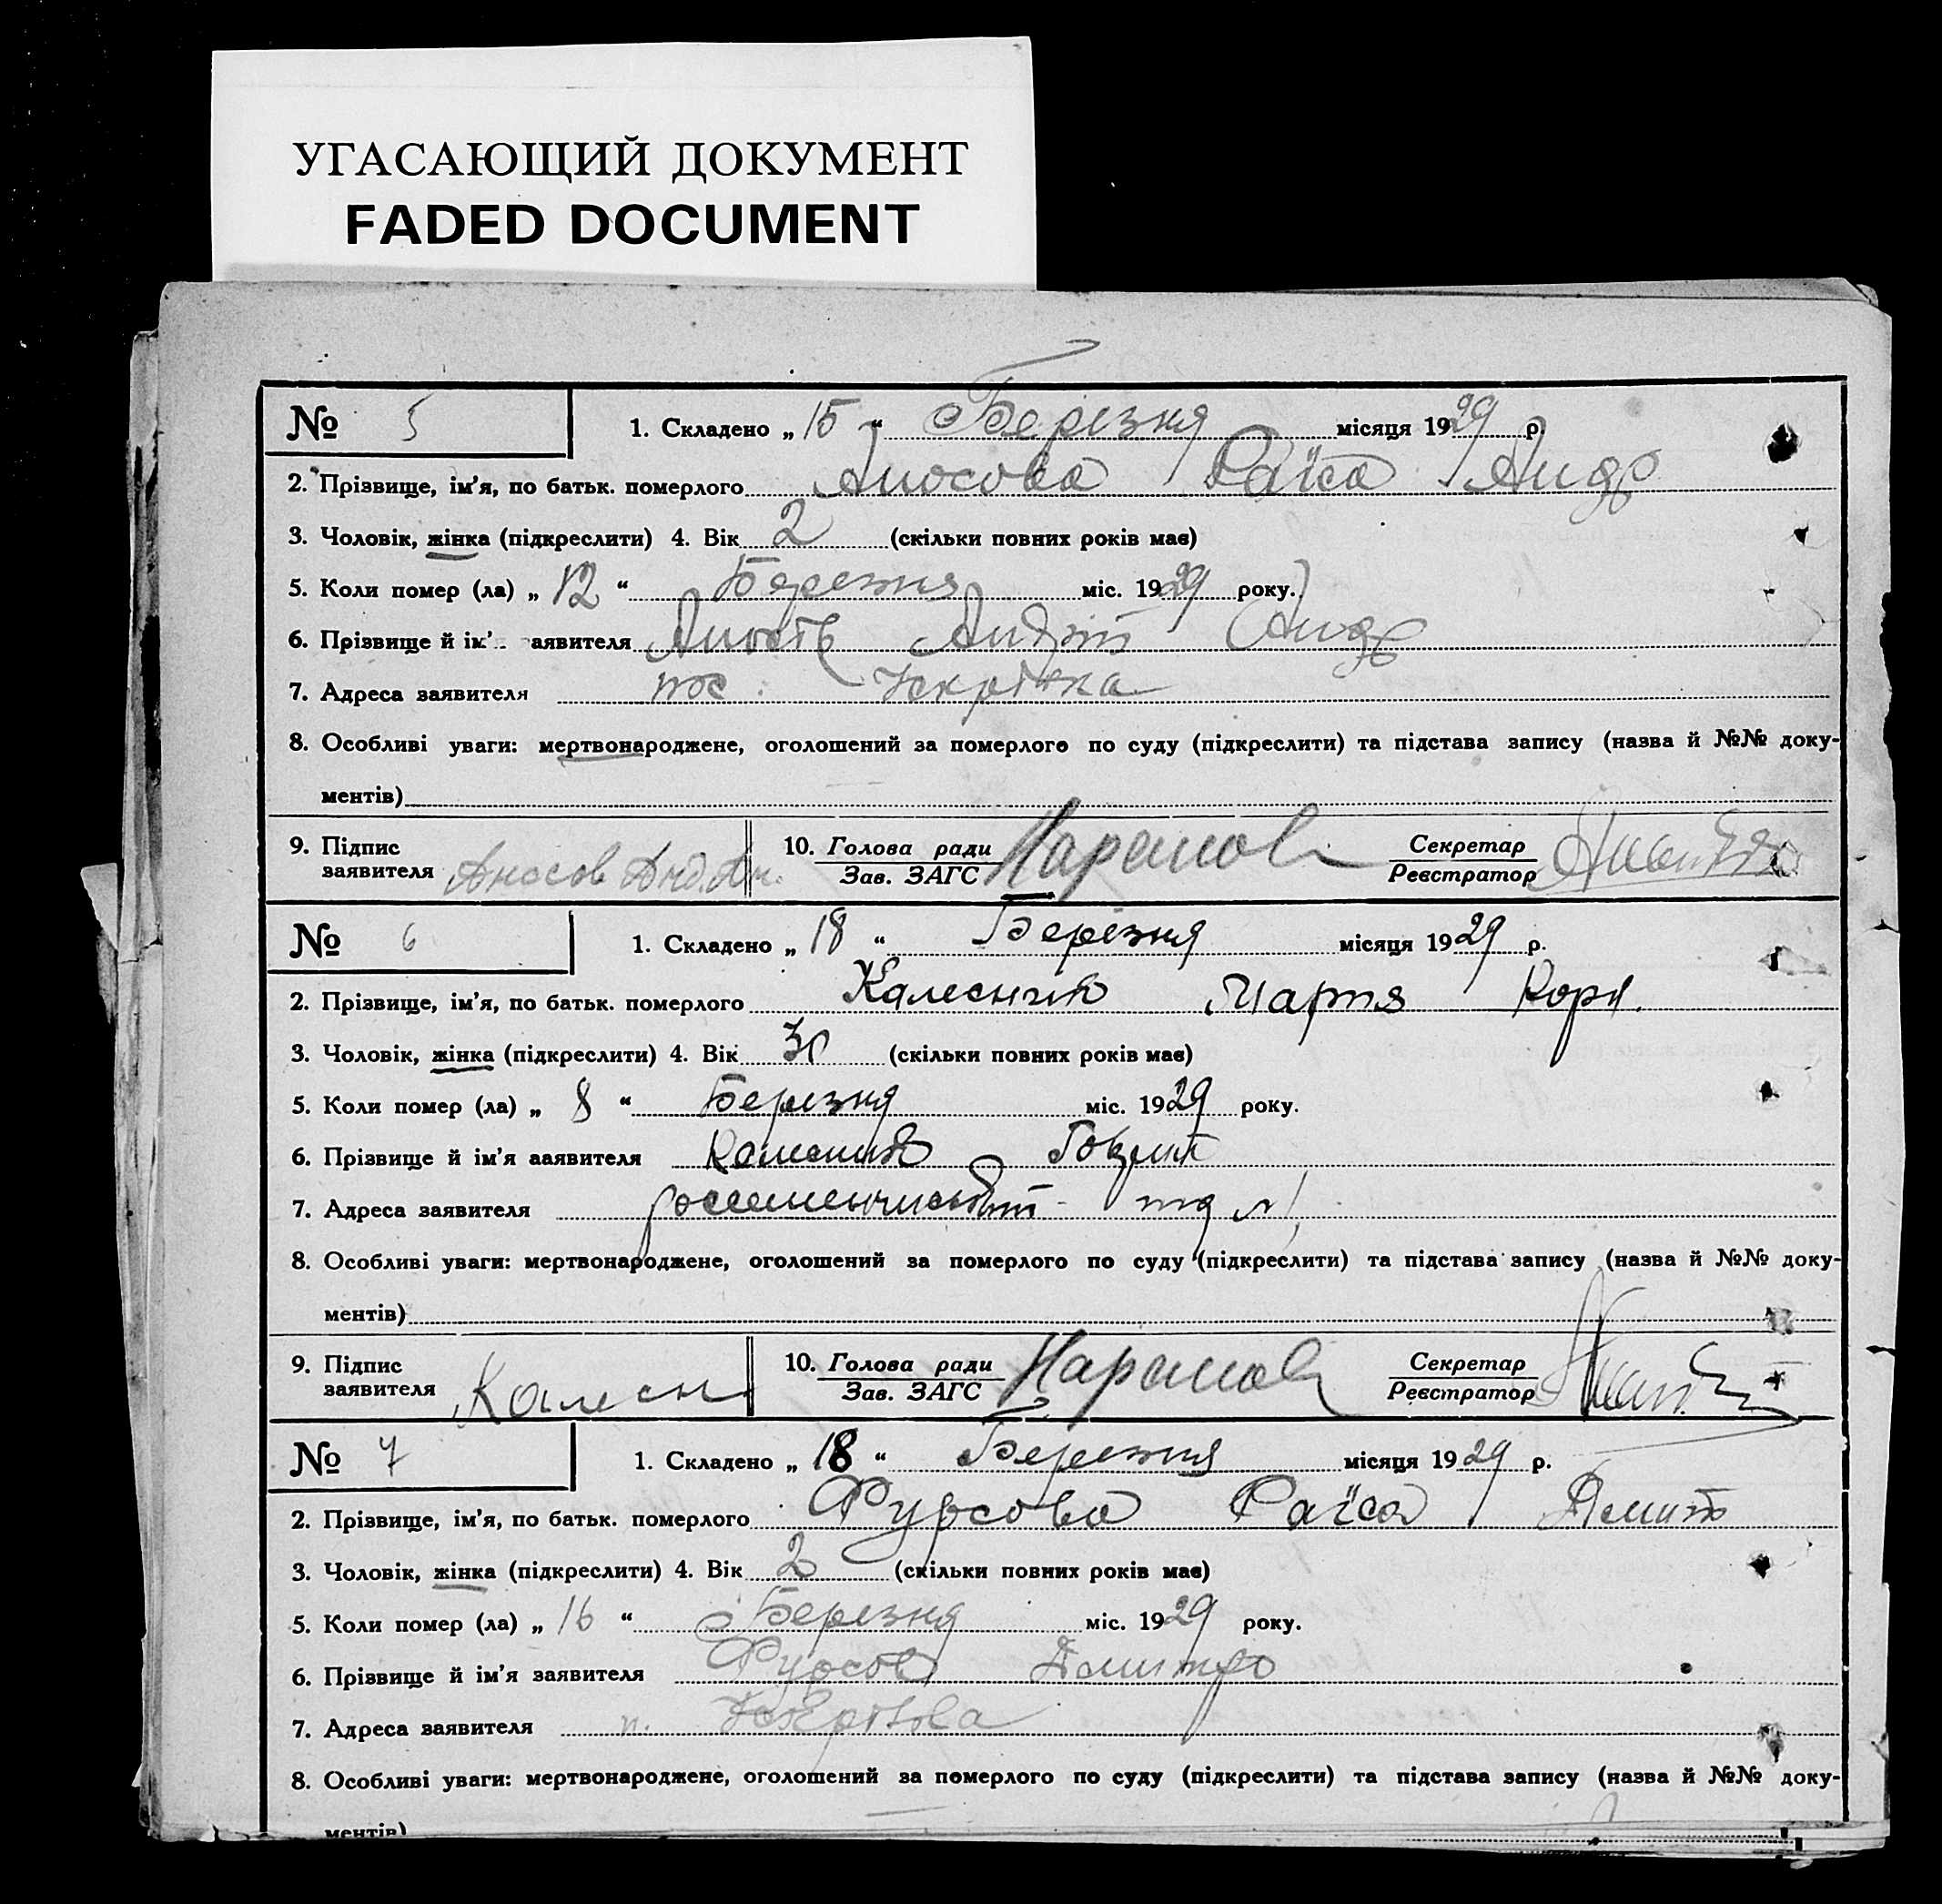 УГАСАЮЩИЙ ДОКУМЕНТ
FADED DOCUMENT
№ 5 1. Складено „ 15 “ Березня місяця 1929 р.
2. Прізвище, ім’я, по батьк. померлого Аносова Раїса Андр
3. Чоловік, жінка (підкреслити) 4. Вік 2 (скільки повних років має)
5. Коли помер (ла) „ 12 “ Березня міс. 1929 року.
6. Прізвище й ім’ аявителя Андр
7. Адреса заявителя пос.
8. Особливі уваги: мертвонароджене, оголошений за померлого по суду (підкреслити) та підстава запису (назва й №№ доку-
ментів)
9. Підпис заявителя Аносов Анд. Ан. 10. Голова ради Зав. ЗАГС Секретар Реєстратор
№ 6 1. Складено „ 18 “ Березня місяця 1929 р.
2. Прізвище, ім’я, по батьк. померлого Калесник Мартя Корн.
3. Чоловік, жінка (підкреслити) 4. Вік 30 (скільки повних років має)
5. Коли помер (ла) „ 8 “ Березня міс. 1929 року.
6. Прізвище й ім’я ааявителя
7. Адреса заявителя
8. Особливі уваги: мертвонароджене, оголошений за померлого по суду (підкреслити) та підстава запису (назва й №№ доку-
ментів)
9. Підпис заявителя Калесн 10. Голова ради Зав. ЗАГС Секретар Реєстратор
№ 7 1. Складено „ 18 “ Березня місяця 1929 р.
2. Прізвище, ім’я, по батьк. померлого Фурсова Раїса Дмит
3. Чоловік, жінка (підкреслити) 4. Вік 2 (скільки повних років має)
5. Коли помер (ла) „ 16 “ Березня міс. 1929 року.
6. Прізвище й ім’я заявителя Фурсов Дмитро
7. Адреса заявителя п.
8. Особливі уваги: мертвонароджене, оголошений за померлого по суду (підкреслити) та підстава запису (назва й №№ доку-
ментів)